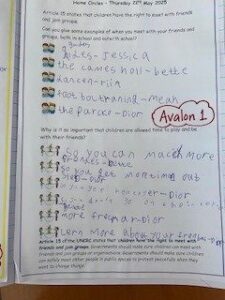 Home Circles - Thursday 22nd May 2025
Article 15 states that children have the right to meet with friends
and join groups.
Can you give some examples of when you meet with your friends and
groups, both in school and outwith school?
guides
Jessica
the games hall - bette
dancen - riia
foot baultraning - mean
the parck - Dior
Avalon 1
Why is it so important that children are allowed time to play and be
with their friends?
So you can mack more
friends - bette
So you get
Dior
Dior
more - Dior
Learn more about your friends - Dior
Article 15 of the UNCRC states that children have the right to meet with
friends and join groups. Governments should make sure children can meet with
friends and join groups or organisations. Governments should make sure children
can safely meet other people in public spaces to protest peacefully when they
want to change things.